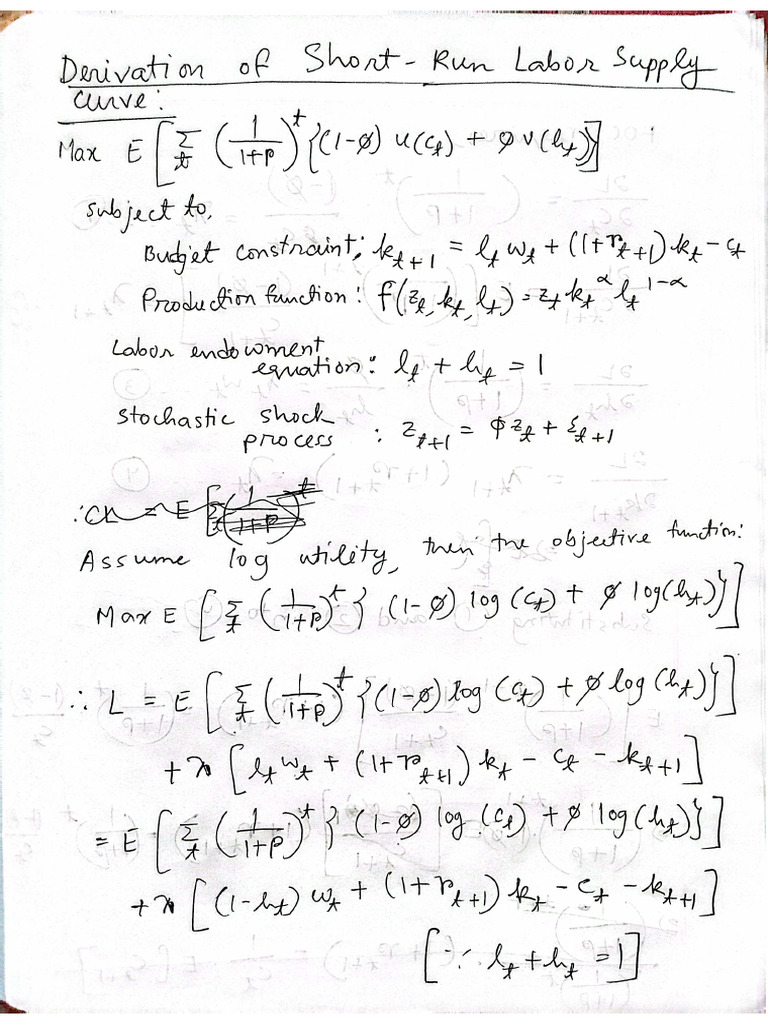 Derivation of Short-Run Labor Supply
Curve:
Max E [ Σ_t (1/(1+ρ))^t {(1-ø) u(c_t) + ø v(h_t)}]
subject to,
Budget constraint: k_{t+1} = l_t w_t + (1+r_{t+1}) k_t - c_t
Production function: f(z_t, k_t, l_t) = z_t k_t^α l_t^{1-α}
Labor endowment
equation: l_t + h_t = 1
Stochastic shock
process : z_{t+1} = φ z_t + ε_{t+1}
Assume log utility, then the objective function:
Max E [ Σ_t (1/(1+ρ))^t { (1-ø) log (c_t) + ø log(h_t)}]
∴ L = E [ Σ_t (1/(1+ρ))^t {(1-ø) log (c_t) + ø log (h_t)}]
+ λ [ l_t w_t + (1+r_{t+1}) k_t - c_t - k_{t+1}]
= E [ Σ_t (1/(1+ρ))^t { (1-ø) log (c_t) + ø log (h_t)}]
+ λ [ (1-h_t) w_t + (1+r_{t+1}) k_t - c_t - k_{t+1}]
[∵ l_t + h_t = 1]